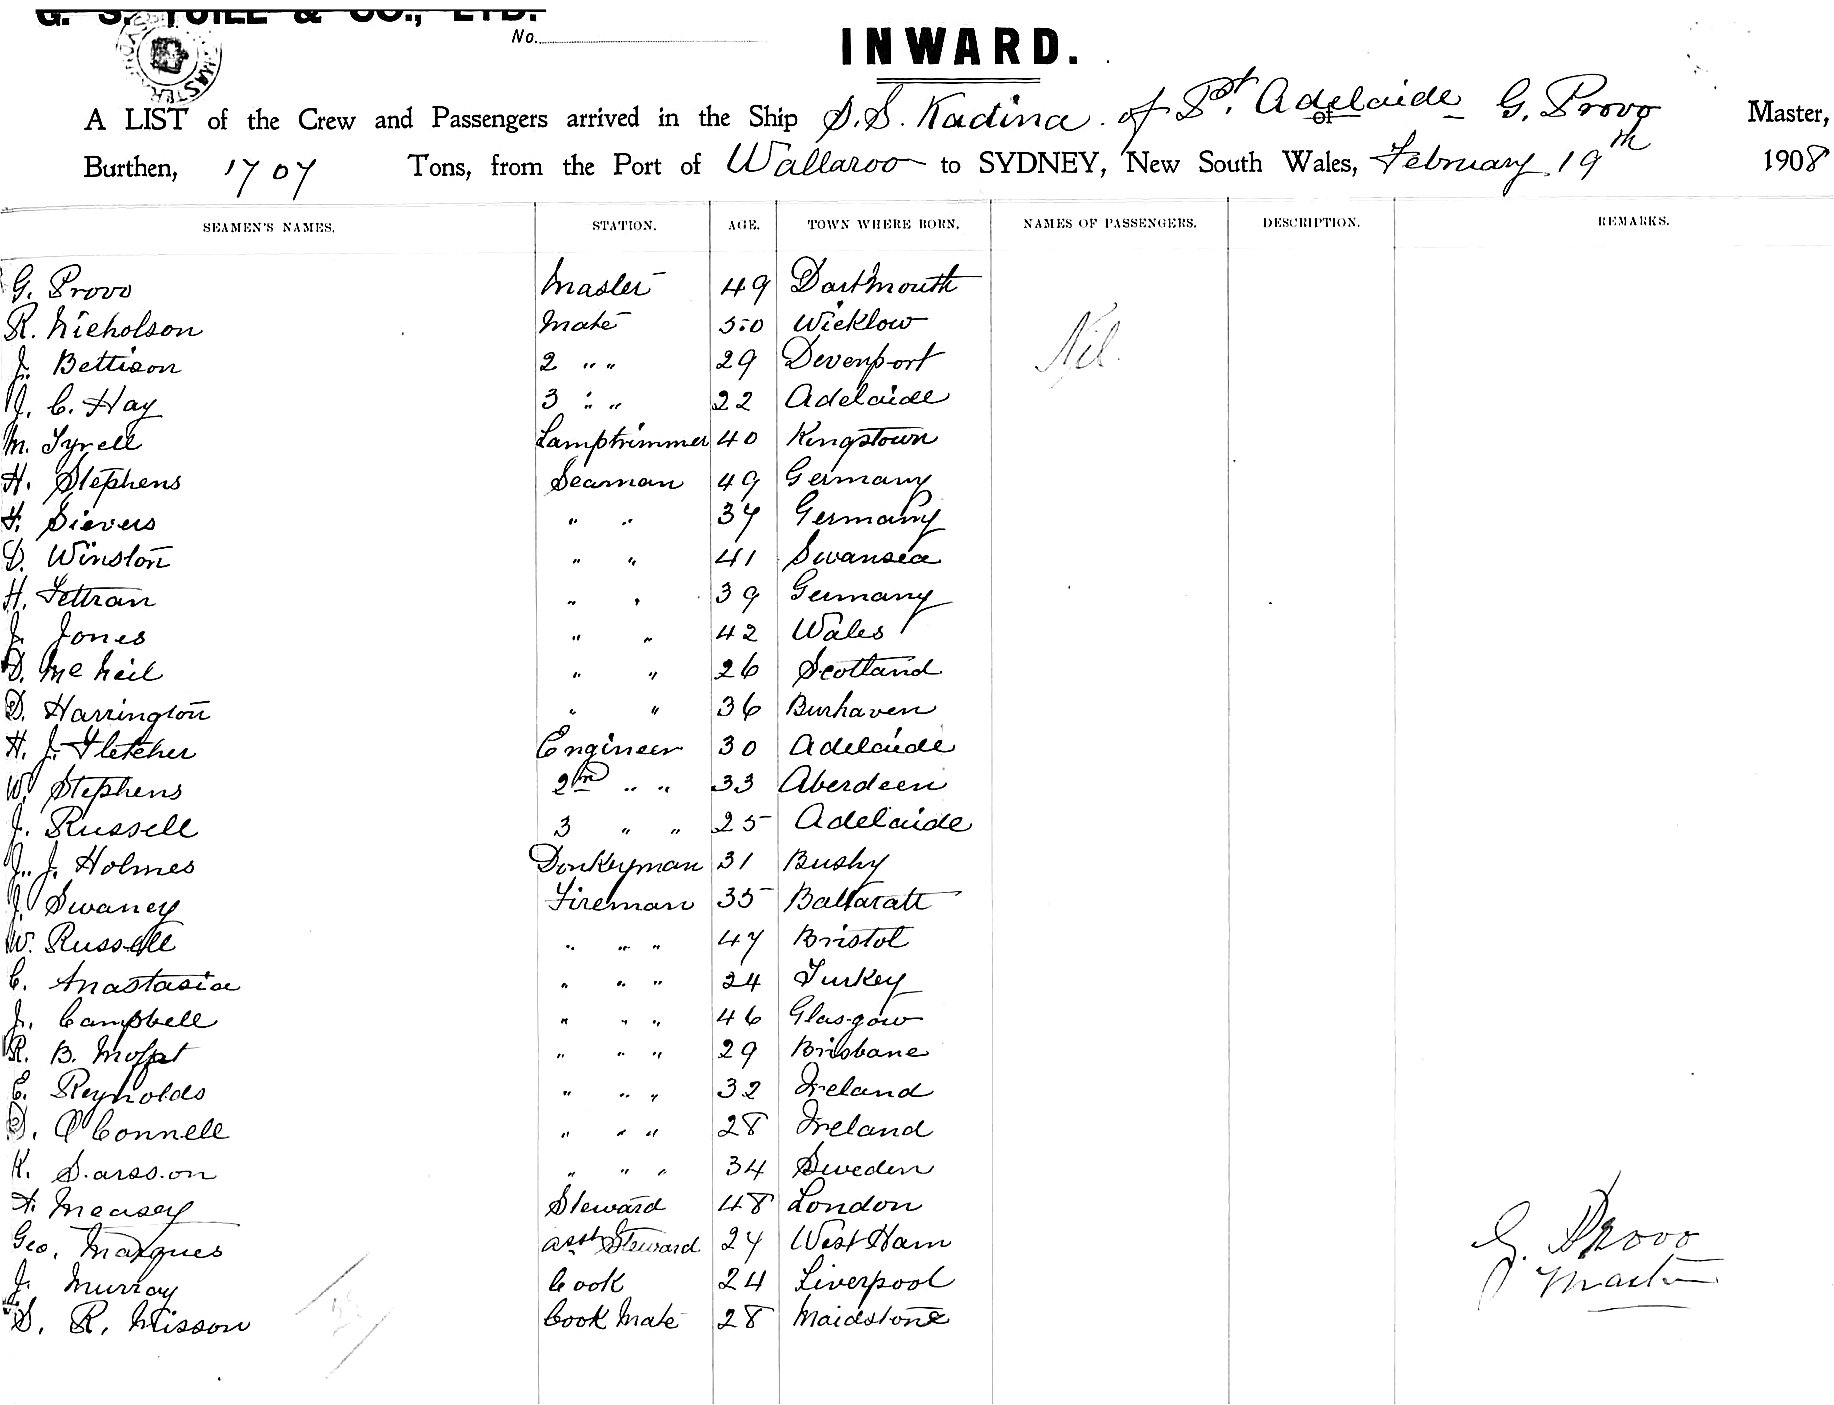 G. S. YUILL & CO., LTD.
No.
INWARD.
A LIST of the Crew and Passengers arrived in the Ship S.S. Kadina of Pt. Adelaide of G. Provo Master,
Burthen, 1707 Tons, from the Port of Wallaroo to SYDNEY, New South Wales, February 19th 1908
SEAMEN'S NAMES. STATION. AGE. TOWN WHERE BORN. NAMES OF PASSENGERS. DESCRIPTION. REMARKS.
G. Provo Master 49 Dartmouth
R. Nicholson Mate 50 Wicklow Nil.
J. Bettison 2 " " 29 Devenport
J. C. Hay 3 " " 22 Adelaide
M. Tyrell Lamptrimmer 40 Kingstown
H. Stephens Seaman 49 Germany
H. Sievers " " 37 Germany
D. Winston " " 41 Swansea
H. Tettran " " 39 Germany
J. Jones " " 42 Wales
D. McNeil " " 26 Scotland
D. Harrington " " 36 Burhaven
H. J. Fletcher Engineer 30 Adelaide
W. Stephens 2nd " " 33 Aberdeen
J. Russell 3 " " 25 Adelaide
J. J. Holmes Donkeyman 31 Bushy
J. Swaney Fireman 35 Ballaratt
W. Russell " " " 47 Bristol
C. Anastasia " " " 24 Turkey
J. Campbell " " " 46 Glasgow
R. B. Moffat " " " 29 Brisbane
E. Reynolds " " " 32 Ireland
D. O'Connell " " " 28 Ireland
K. Sarsson " " " 34 Sweden
A. Measey Steward 48 London
Geo. Marques asst Steward 27 West Ham
J. Murray Cook 24 Liverpool
S. R. Misson Cook Mate 28 Maidstone
G. Provo
Master